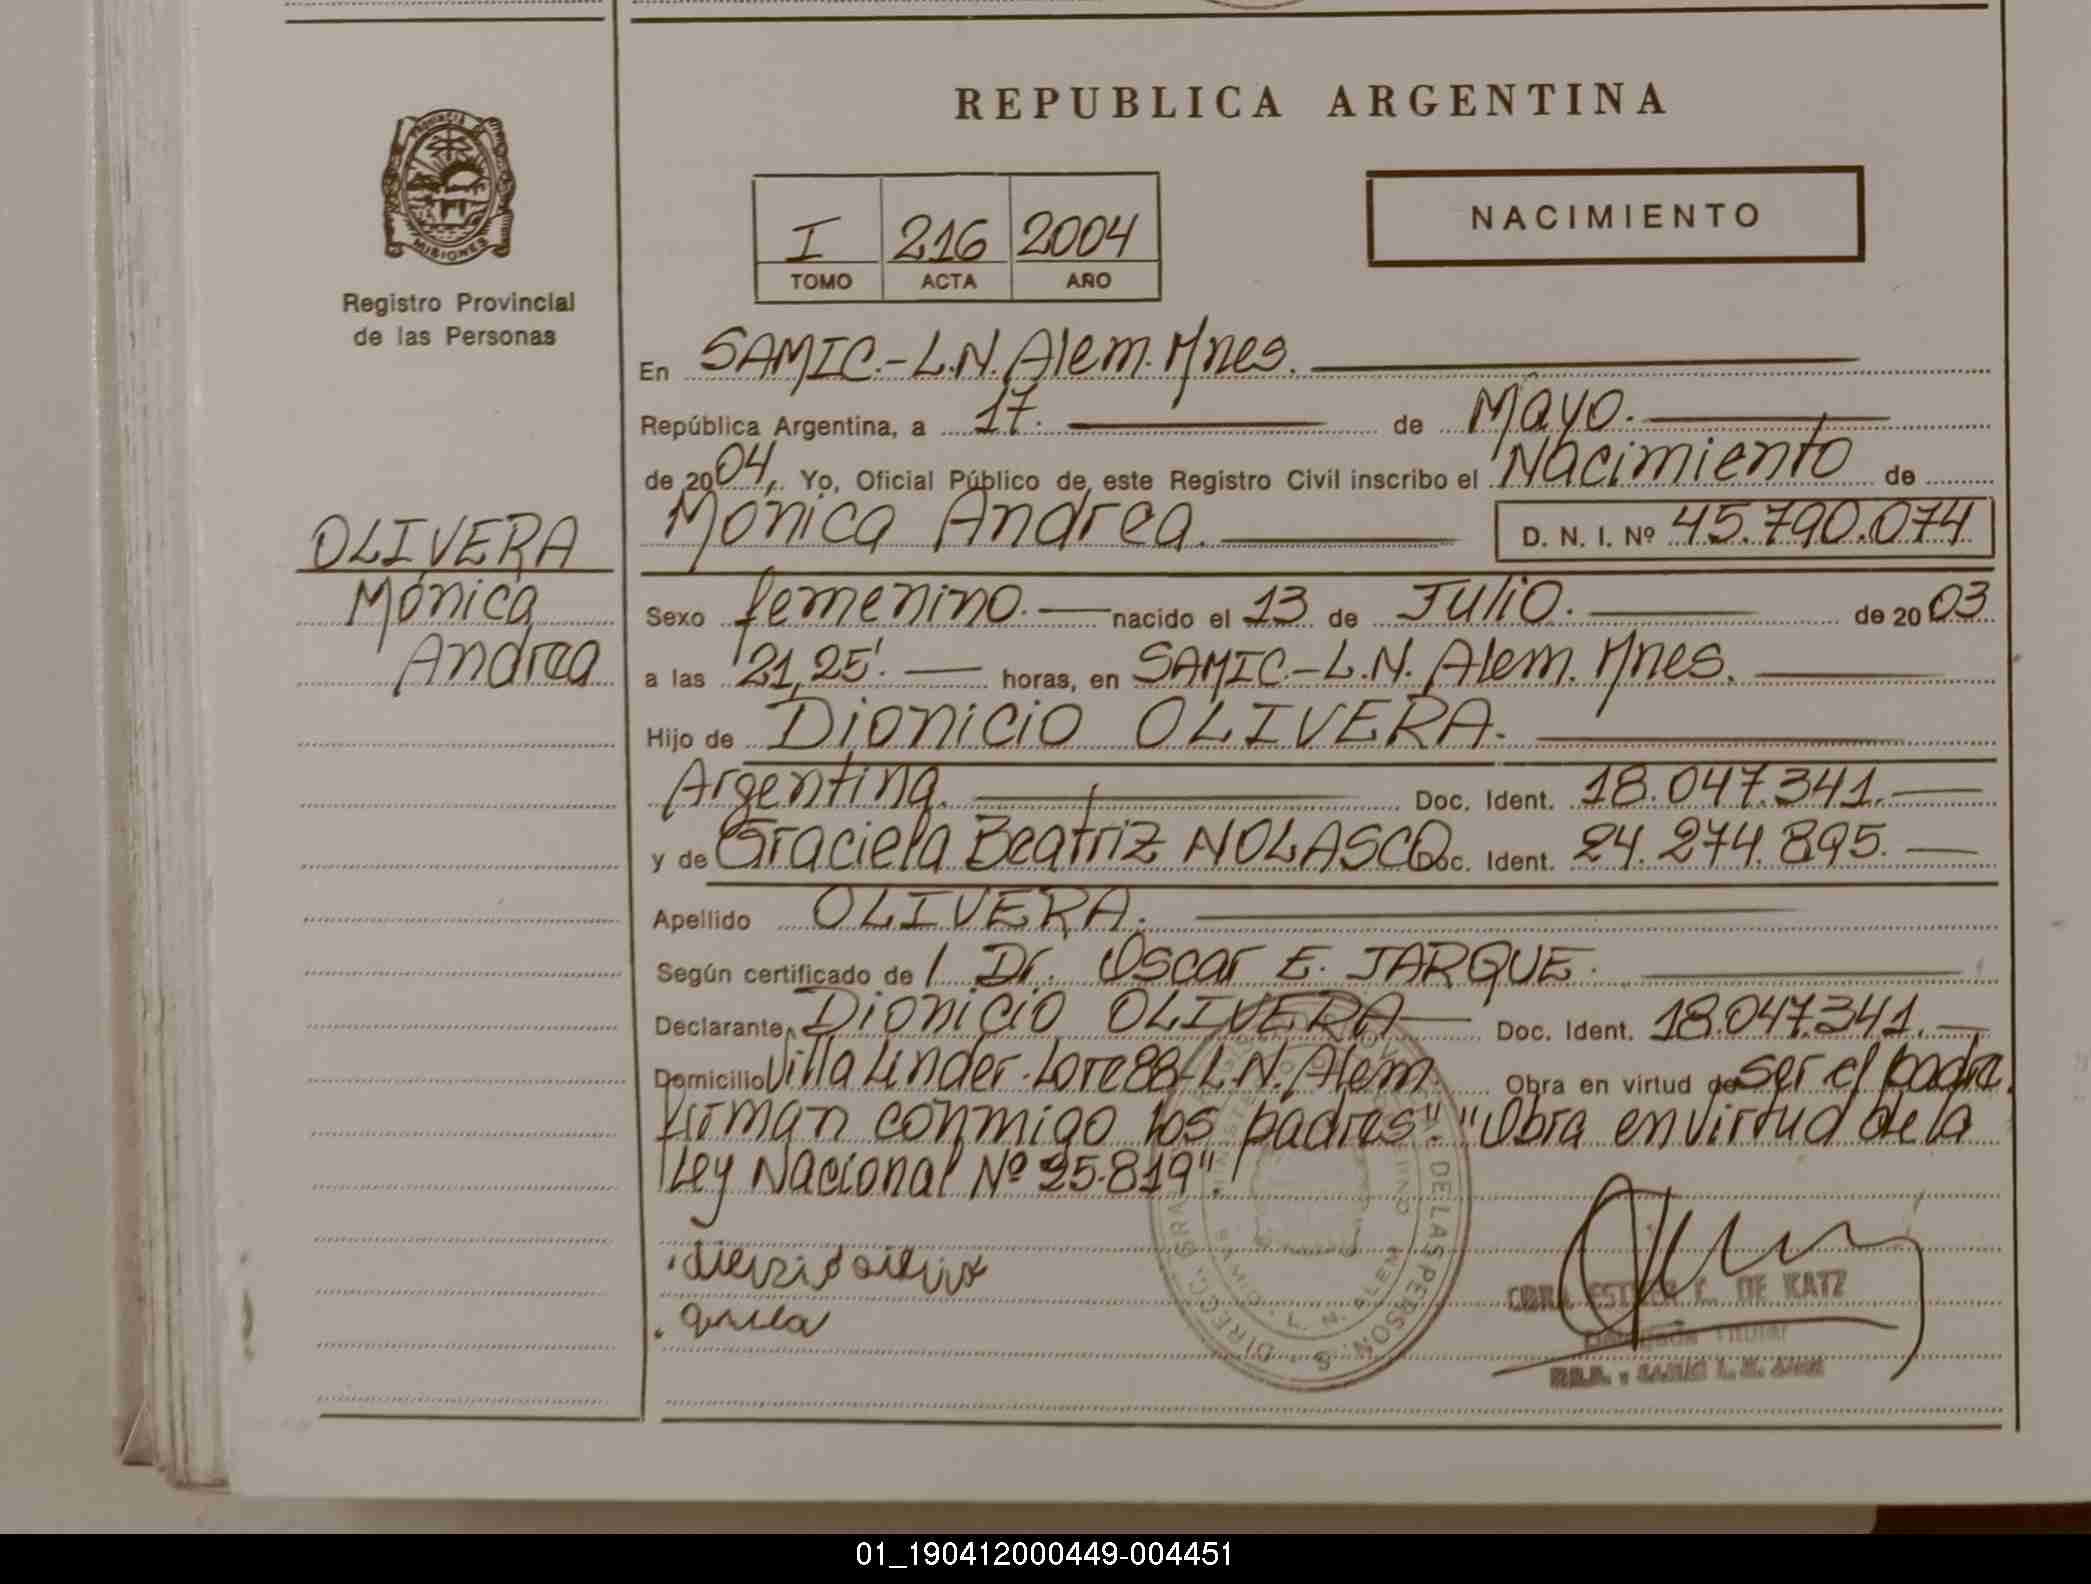 REPUBLICA ARGENTINA
I 216 2004
TOMO ACTA AÑO
NACIMIENTO
MISIONES
Registro Provincial
de las Personas
OLIVERA
Mónica
Andrea
En SAMIC.-L.N. Alem. Mnes.
República Argentina, a 17. de Mayo.
de 2004, Yo, Oficial Público de este Registro Civil inscribo el Nacimiento de
Mónica Andrea. D. N. I. Nº 45.790.074
Sexo femenino. nacido el 13 de Julio. de 2003
a las 21,25'. horas, en SAMIC.-L.N. Alem. Mnes.
Hijo de Dionicio OLIVERA.
Argentina. Doc. Ident. 18.047.341.
y de Graciela Beatriz NOLASCO Doc. Ident. 24.274.895.
Apellido OLIVERA.
Según certificado de Dr. Oscar E. JARQUE.
Declarante, Dionicio OLIVERA Doc. Ident. 18.047.341.
Domicilio Villa Linder-Lote 88-L.N. Alem Obra en virtud de ser el padre.
firman conmigo los padres". "Obra en virtud de la
Ley Nacional Nº 25.819".
DE LAS PERSONAS
L. N. ALEM
CBRA. ESTHER C. DE KATZ
Delegada Titular
01_190412000449-004451